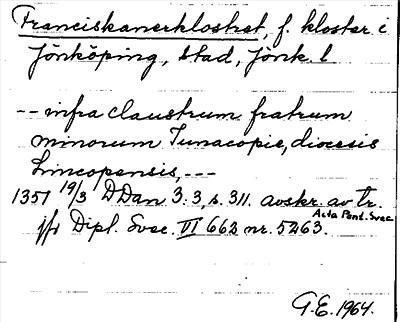 Franciskanerklostret, f. kloster i
Jönköping, stad, Jönk. l
-- infra claustrum fratrum
minorum Junacopie, diocesis
Lincopensis, ---
1351 19/3 DDan 3.3, s. 311. avskr. av tr.
Acta Pont. Svec
jfr Dipl. Svec. VI 662 nr. 5263.
G.E. 1964.